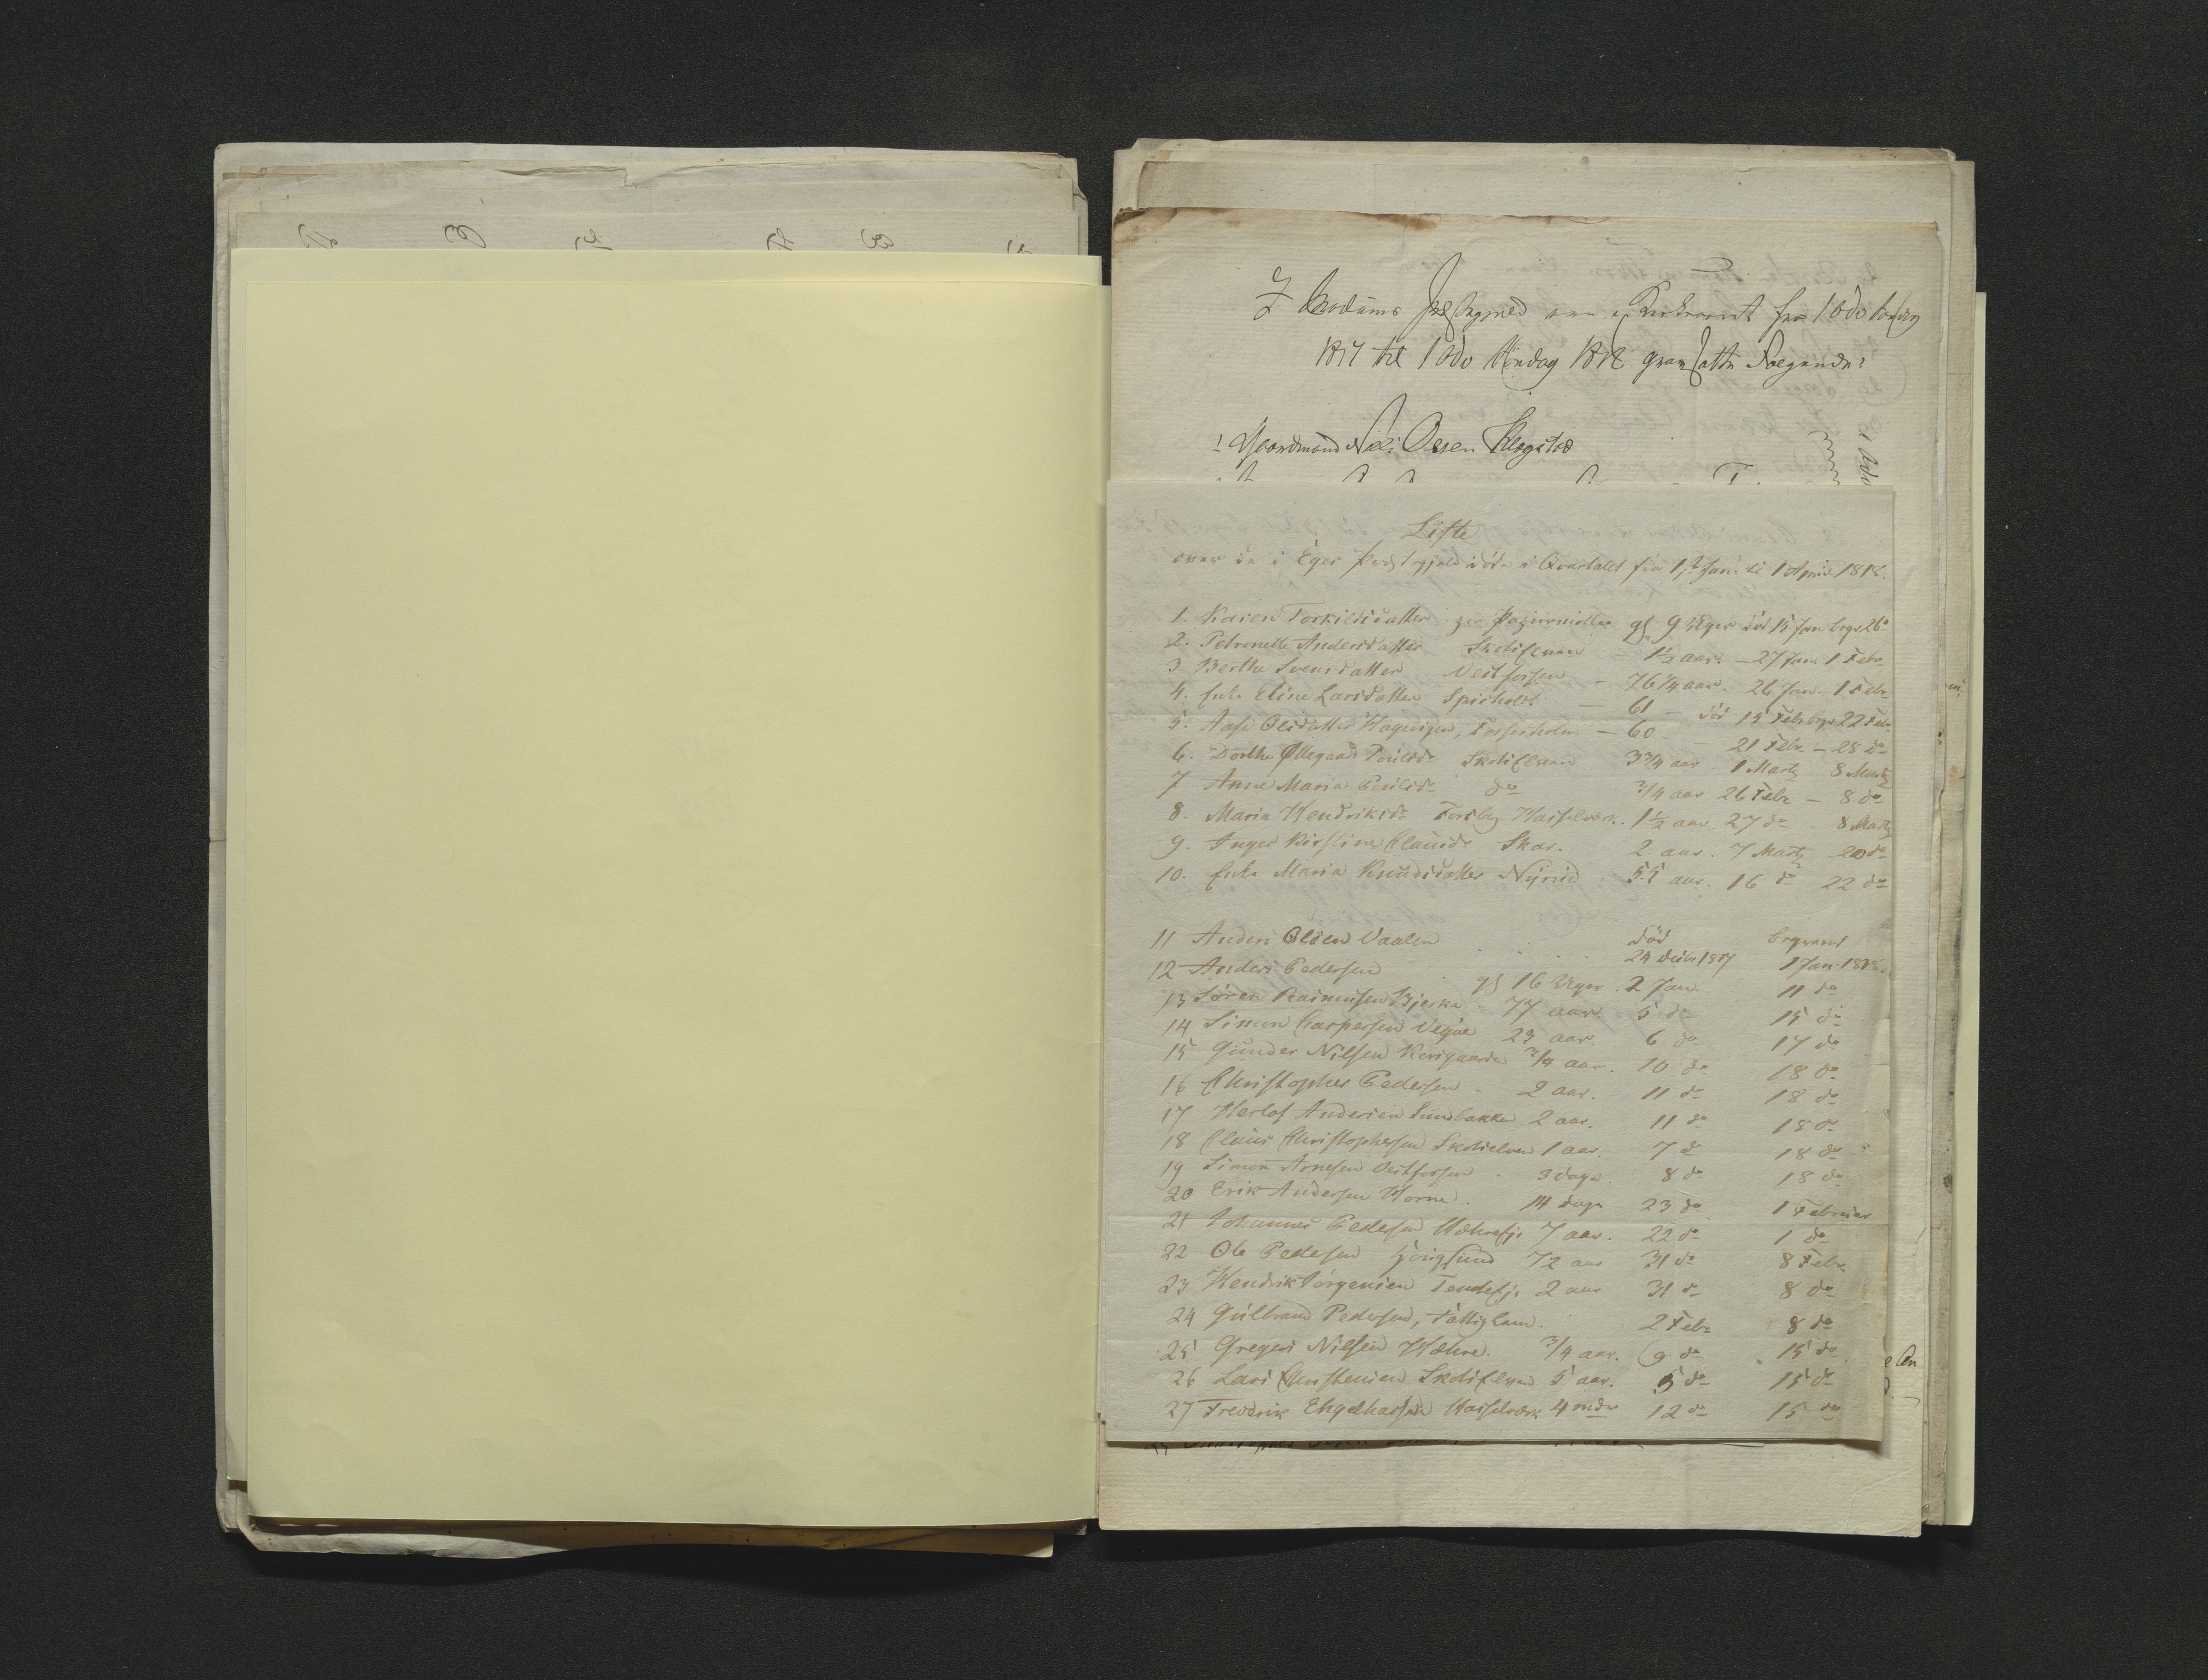 I Modums Præstegjeld ere i Kirkeaaret fra 1 Adv. Søndag
1817 til 1 Adv Søndag 1818 gravsatte Følgende:
1 Gaardmand Nils Olsen Skogstad
Liste
over de i Eger Præstegjeld døde i Qvartallet fra 1ste Jan. til 1 April 1818.
1. Karen Torkildsdatter paa Papiermøllen gl. 9 Uger død 15 Jan begr 26
2. Petronelle Andersdatter Skotselven - 1½ aar. - 27 Jan. 1 Febr.
3 Berthe Svensdatter Vestfossen - 76 1/4 aar. 26 Jan. 1 Febr.
4. Enke Eline Larsdatter - 61 - død 15 Febr begr 22 Febr
5. Aase Olsdatter Fossesholm - 60 - 21 Febr - 28 do
6. Dorthe Poulsdr Skotselven 3 3/4 aar 1 Marts 8 Marts
7 Anne Maria Poulsdr do 3/4 aar 26 Febr - 8 do
8. Maria Hendriksdr Forsbg Hasselværk. 1½ aar. 27 do 8 Marts
9. Inger Kirstine Clausdr Skar. 2 aar. 7 Marts do
10. Enke Maria Knudsdatter Nyrud . 55 aar. 16 do 22 do
død begravet
11 Anders Olsen Vaalen . . . . 24 Decbr 1817 1 Jan. 1818.
12 Anders Pedersen . gl 16 Uger. 2 Jan 11 do
13 Søren Rasmusen Bjerke - 77 aar. 5 do 15 do
14 Simen Caspersen 23 aar. 6 do 17 do
15 Gunder Nilsen 3/4 aar. 10 do 18 do
16 Christopher Pedersen - 2 aar. 11 do 18 do
17 Herlof Andersen 2 aar. 11 do 18 do
18 Claus Christophersen Skotselven 1 aar. 7 do 18 do
19 Simon Arnesen Vestfossen - 3 dage. 8 do 18 do
20 Erik Andersen Horne. 14 dage 23 do 1 Februar
21 Johannes Pedersen 7 aar. 22 do 1 do
22 Ole Pedersen Hougsund 72 aar 31 do 8 Febr.
23 Hendrik Jörgensen 2 aar 31 do 8 do
24 Gulbrand Pedersen, Fattiglem. 2 Febr 8 do
25 Gregers Nielsen Hære. 3/4 aar. 9 do 15 do
26 Lars Christensen Skotselven 5 aar. 5 do 15 do
27 Frederik Hasselværk 4 mdr 12 do 15 do